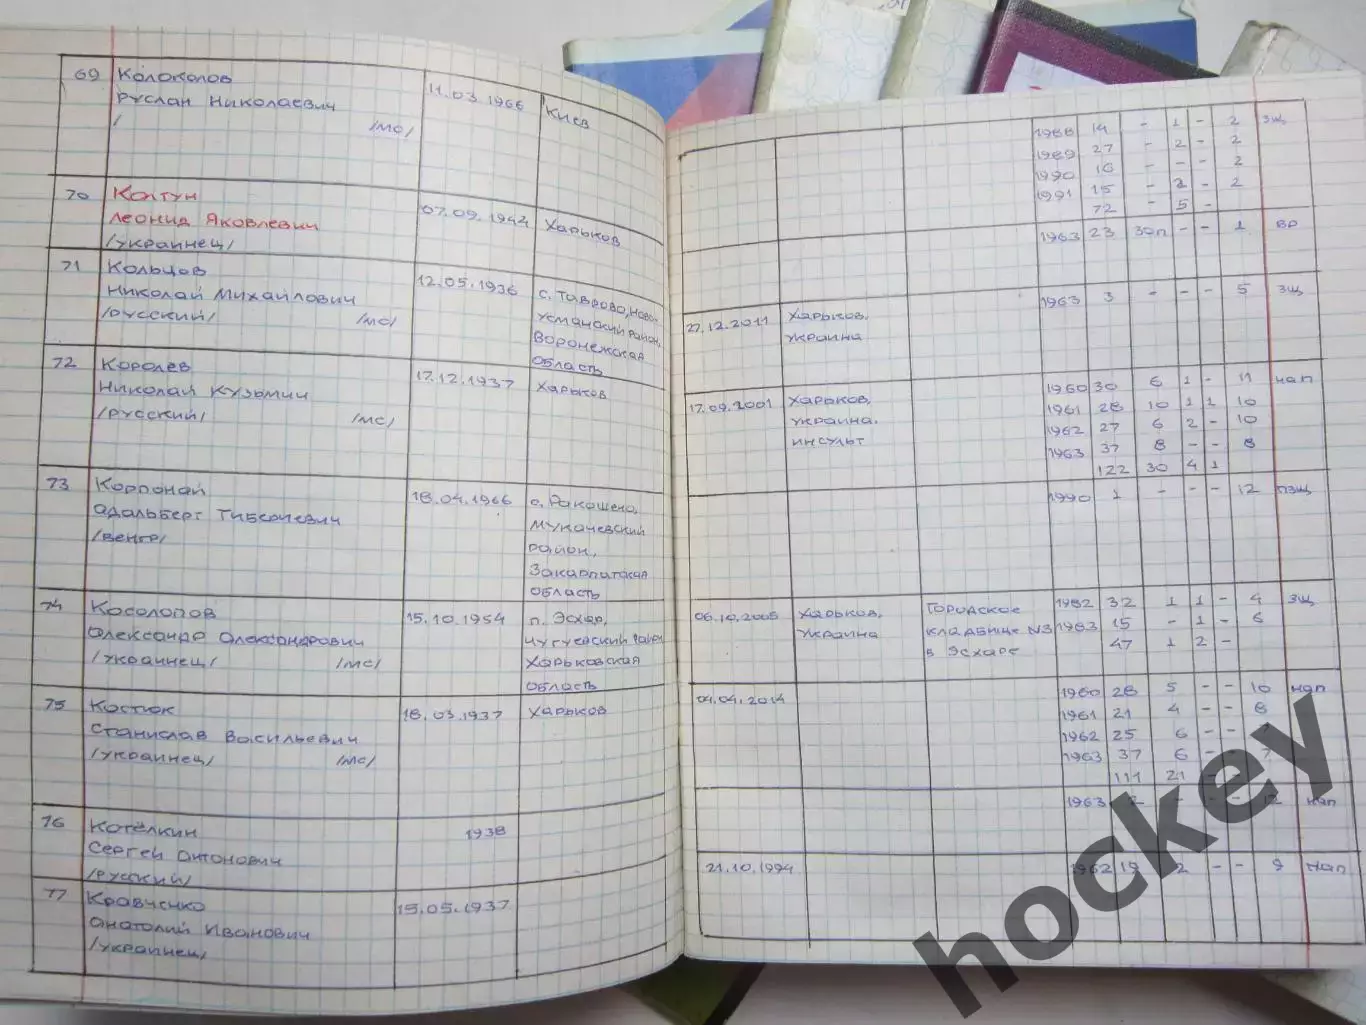 69
Колоколов
Руслан Николаевич
/ /мс/
11.03.1966
Киев
70
Колтун
Леонид Яковлевич
/украинец/
07.09.1942
Харьков
71
Кольцов
Николай Михайлович
/русский/ /мс/
12.05.1936
с. Таврово, Ново-
Усманский район,
Воронежская
область
72
Королев
Николай Кузьмич
/русский/ /мс/
17.12.1937
Харьков
73
Корпонай
Адальберт Тибериевич
/венгр/
18.04.1966
с. Ракошено,
Мукачевский
район,
Закарпатская
область
74
Косолапов
Александр Александрович
/украинец/ /мс/
15.10.1954
п. Эсхар,
Чугуевский район
Харьковская
область
75
Костюк
Станислав Васильевич
/украинец/ /мс/
18.03.1937
Харьков
76
Котёлкин
Сергей Антонович
/русский/
1938
77
Кравченко
Анатолий Иванович
/украинец/
15.05.1937
1988 14 - 1 - 2 зщ
1989 27 - 2 - 2
1990 16 - - - 2
1991 15 - 2 - 2
72 - 5 -
1963 23 30п - - 1 вр
27.12.2011
Харьков,
Украина
1963 3 - - - 5 зщ
17.09.2001
Харьков,
Украина.
инсульт
1960 30 6 1 - 11 нап
1961 28 10 1 1 10
1962 27 6 2 - 10
1963 37 8 - - 8
122 30 4 1
1990 1 - - - 12 пзщ
06.10.2005
Харьков,
Украина
Городское
кладбище №3
в Эсхаре
1982 32 1 1 - 4 зщ
1983 15 - 1 - 6
47 1 2 -
04.04.2014
1960 28 5 - - 10 нап
1961 21 4 - - 8
1962 25 6 - -
1963 37 6 - - 7
111 21 - -
1963 2 - - - 12 нап
21.10.1994
1962 19 2 - - 9 нап
hockey